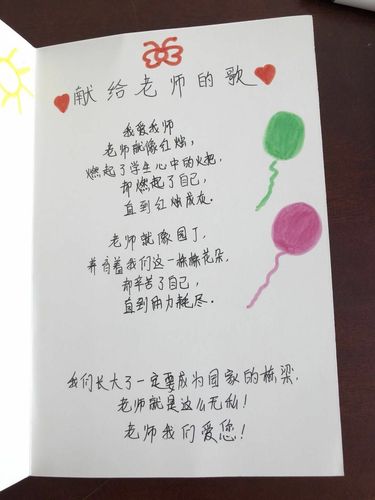 献给老师的歌
我爱我师
老师就像红烛,
燃起了学生心中的火把,
却燃起了自己,
直到红烛成灰.
老师就像园丁,
养育着我们这一株株花朵,
却辛苦了自己,
直到用力耗尽.
我们长大了一定要成为国家的栋梁.
老师就是这么无私!
老师我们爱您!